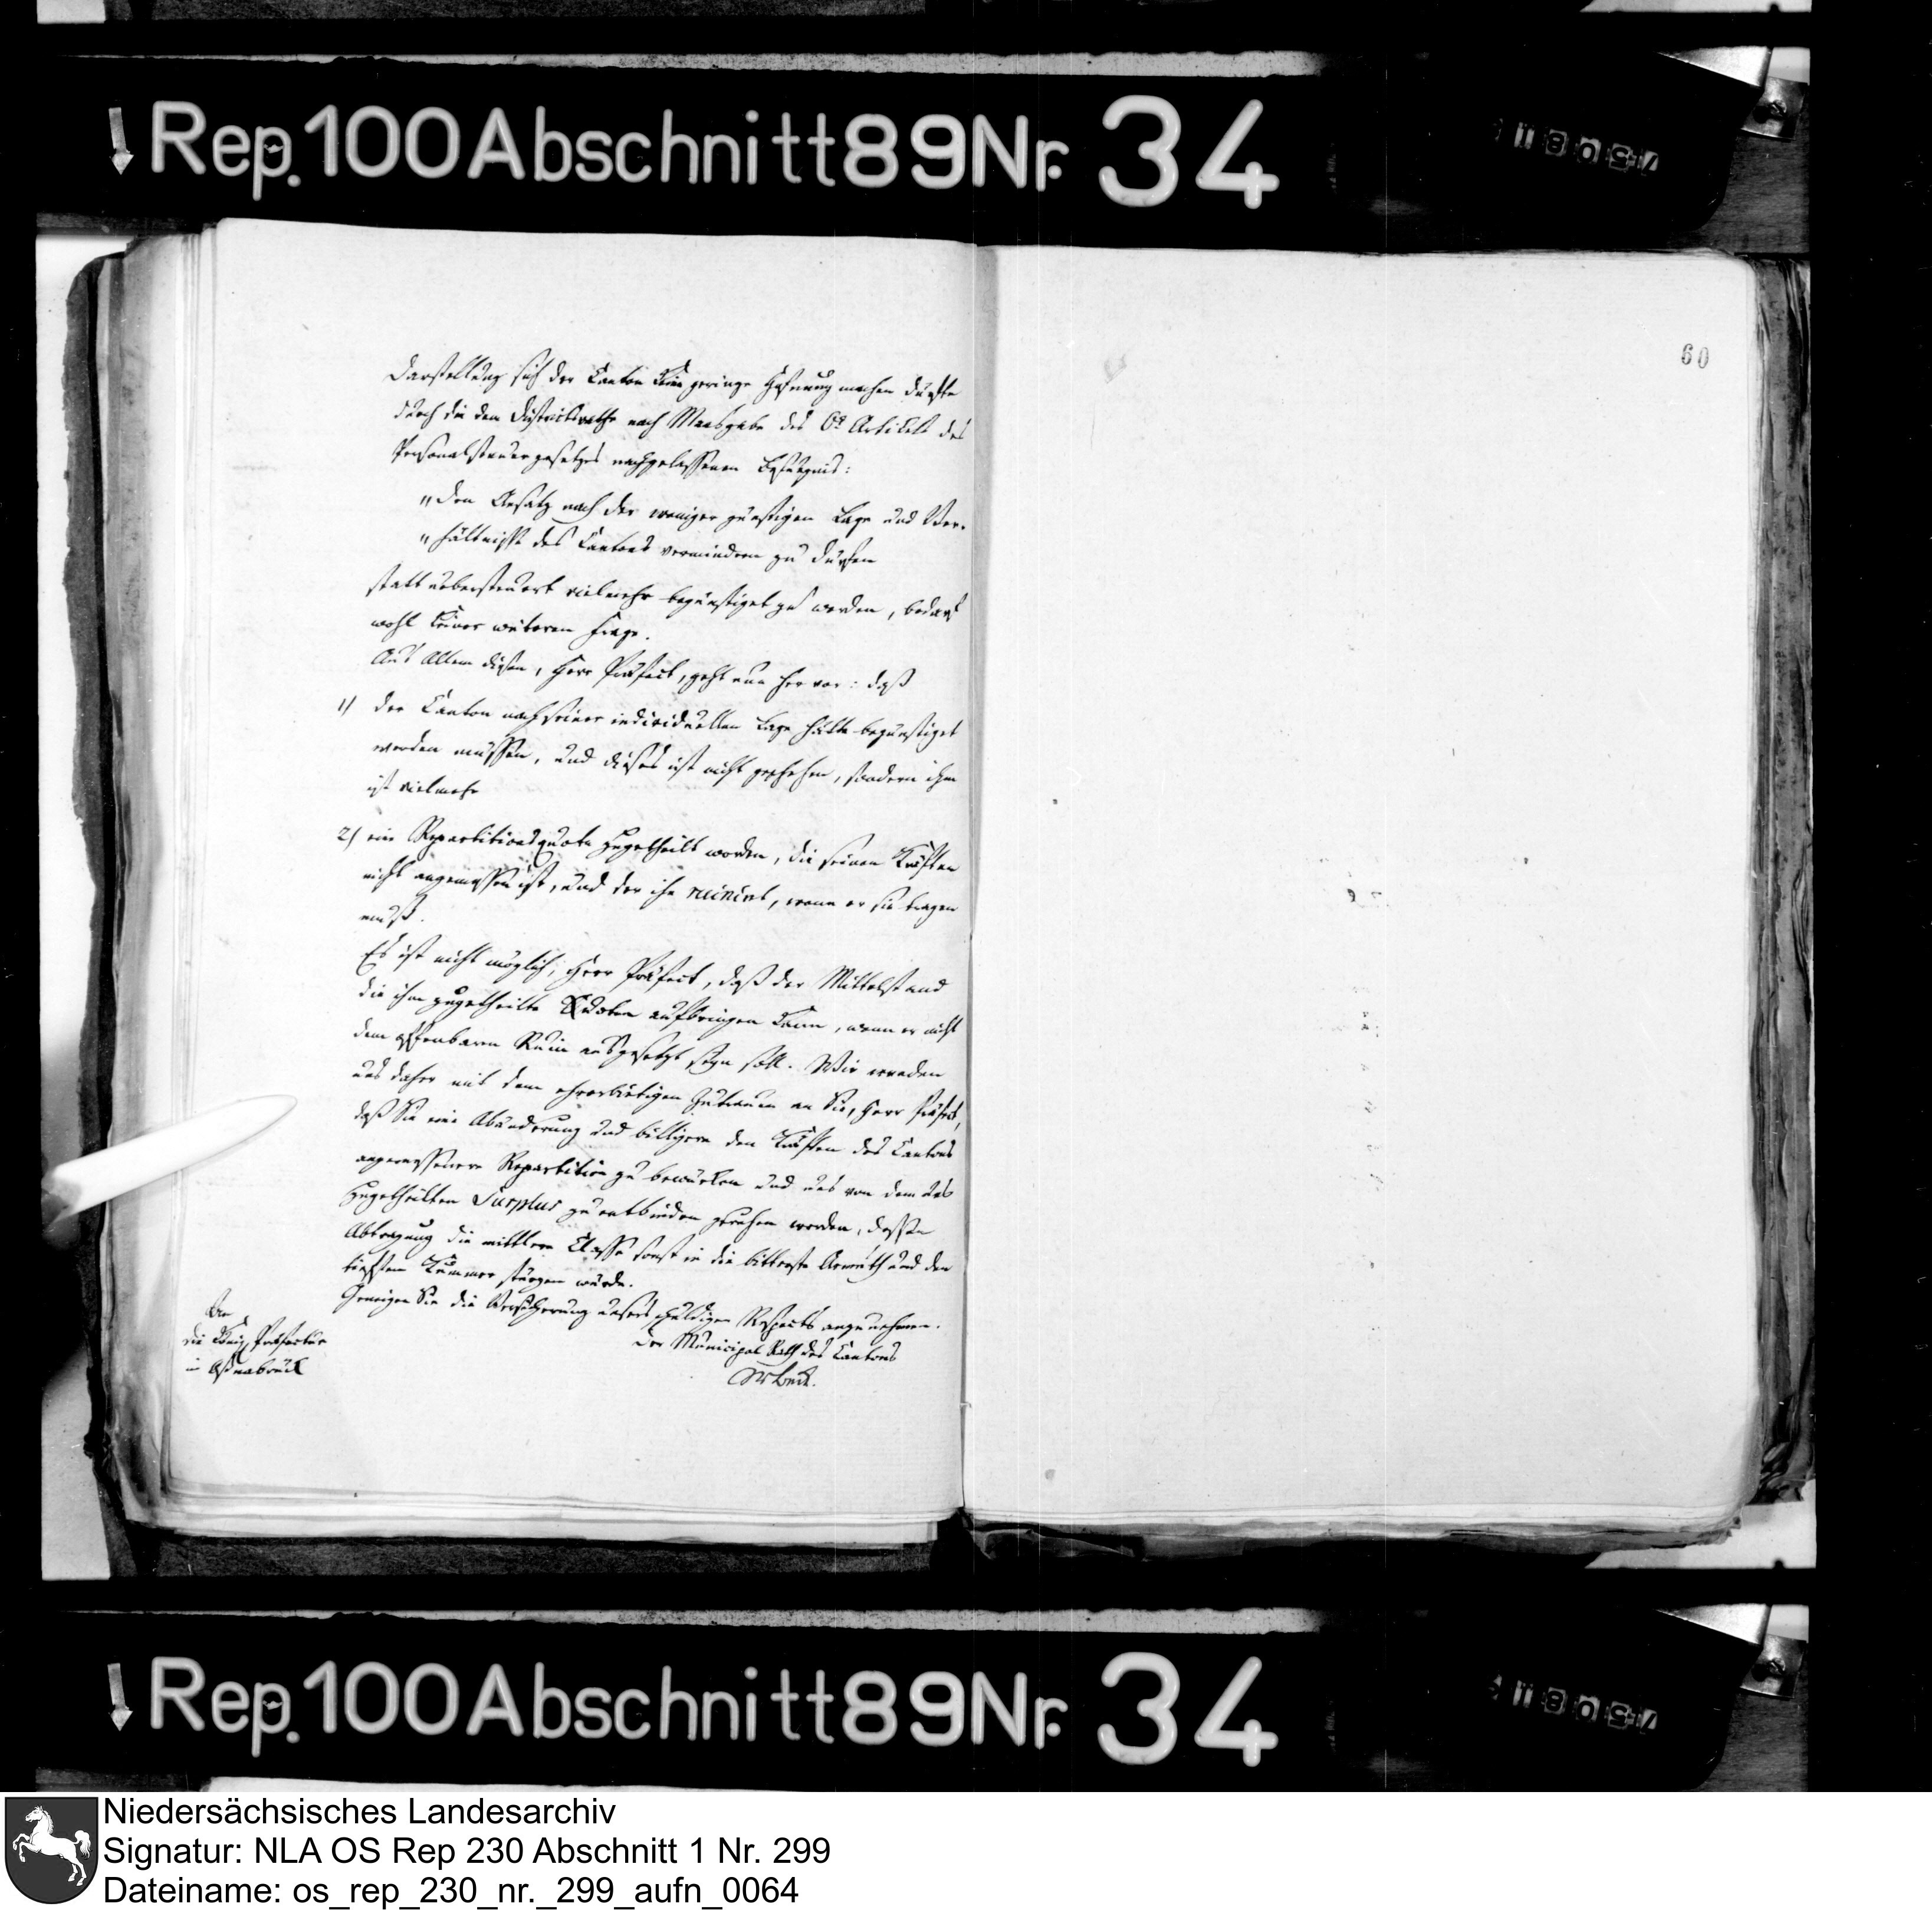 Rep. 100 Abschnitt 89 Nr. 34
60
Darstellung sich der Canton keine geringe Hofnung machen durfte
durch die dem Districtsrathe nach Maasgabe des 6n Artikels des
Personalsteuergesetzes nachgelassenen Befugnis:
"den Ansatz nach der weniger günstigen Lage und Ver-
"hältnisse des Cantons vermindern zu dürfen
statt uebersteuert vielmehr begünstiget zu werden, bedarf
wohl keiner weiteren Frage.
Aus Allem diesen, Herr Präfect, geht nun hervor: daß
1) der Canton nach seiner individuellen Lage hätte begünstiget
werden müssen, und dieses ist nicht geschehen, sondern ihm
ist vielmehr
2) eine Repartitionsquote zugetheilt worden, die seinen Kräften
nicht angemessen ist, und der ihn ruinirt, wenn er sie tragen
muß.
Es ist nicht möglich, Herr Präfect, daß der Mittelstand
die ihm zugetheilte Quoten aufbringen kann, wenn er nicht
dem offenbaren Ruin ausgesetzt seyn soll. Wir wenden
uns daher mit dem ehrerbietigen Zutrauen an Sie, Herr Präfect,
daß Sie eine Abänderung und billigere den Kräften des Cantons
angemessenere Repartition zu bewürken und uns von dem uns
zugetheilten Surplus zu entbinden geruhen werden, dessen
Abtragung die mittlere Classe sonst in die bitterste Armuth und den
tiefsten Kummer stürzen würde.
Geneigen Sie die Versicherung unsers schuldigen Respects anzunehmen.
Der Municipal Rath des Cantons
An
die Königl. Präfectur
in Osnabrück
Rep. 100 Abschnitt 89 Nr. 34
Niedersächsisches Landesarchiv
Signatur: NLA OS Rep 230 Abschnitt 1 Nr. 299
Dateiname: os_rep_230_nr._299_aufn_0064